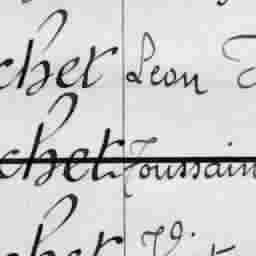 chet Léon
chet Toussain
chet